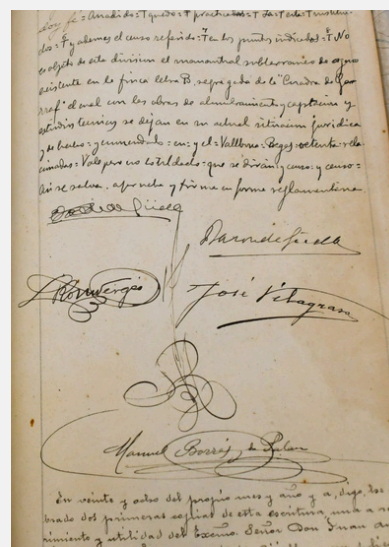 doy fe = Añadido = quedo = practicadas = La = esta =
dos = y ademas el censo referido = en los puntos indicados = No
es objeto de esta division el manantial subterraneo de agua
existente en la finca letra B, segregada de la Cuadra de Gar
raf, el cual con las obras de alumbramiento y captacion y
estudios tecnicos se dejan en su actual situacion juridica
y de hecho = y enmendado = en = y el = Vallbona = Begas = setenta = rela
cionadas = Vale pero no lo tildado = que se dirán y cuyo = y censo =
Asi se salva, aprueba y firma en forma reglamentaria.
de Güell
Baron de Güell
José Vilagrasa
Manuel Borrás de Palau
En veinte y ocho del propio mes y año y a, digo, los
brado dos primeras copias de esta escritura, una a
rimiento y utilidad del Excmo. Señor Don Juan